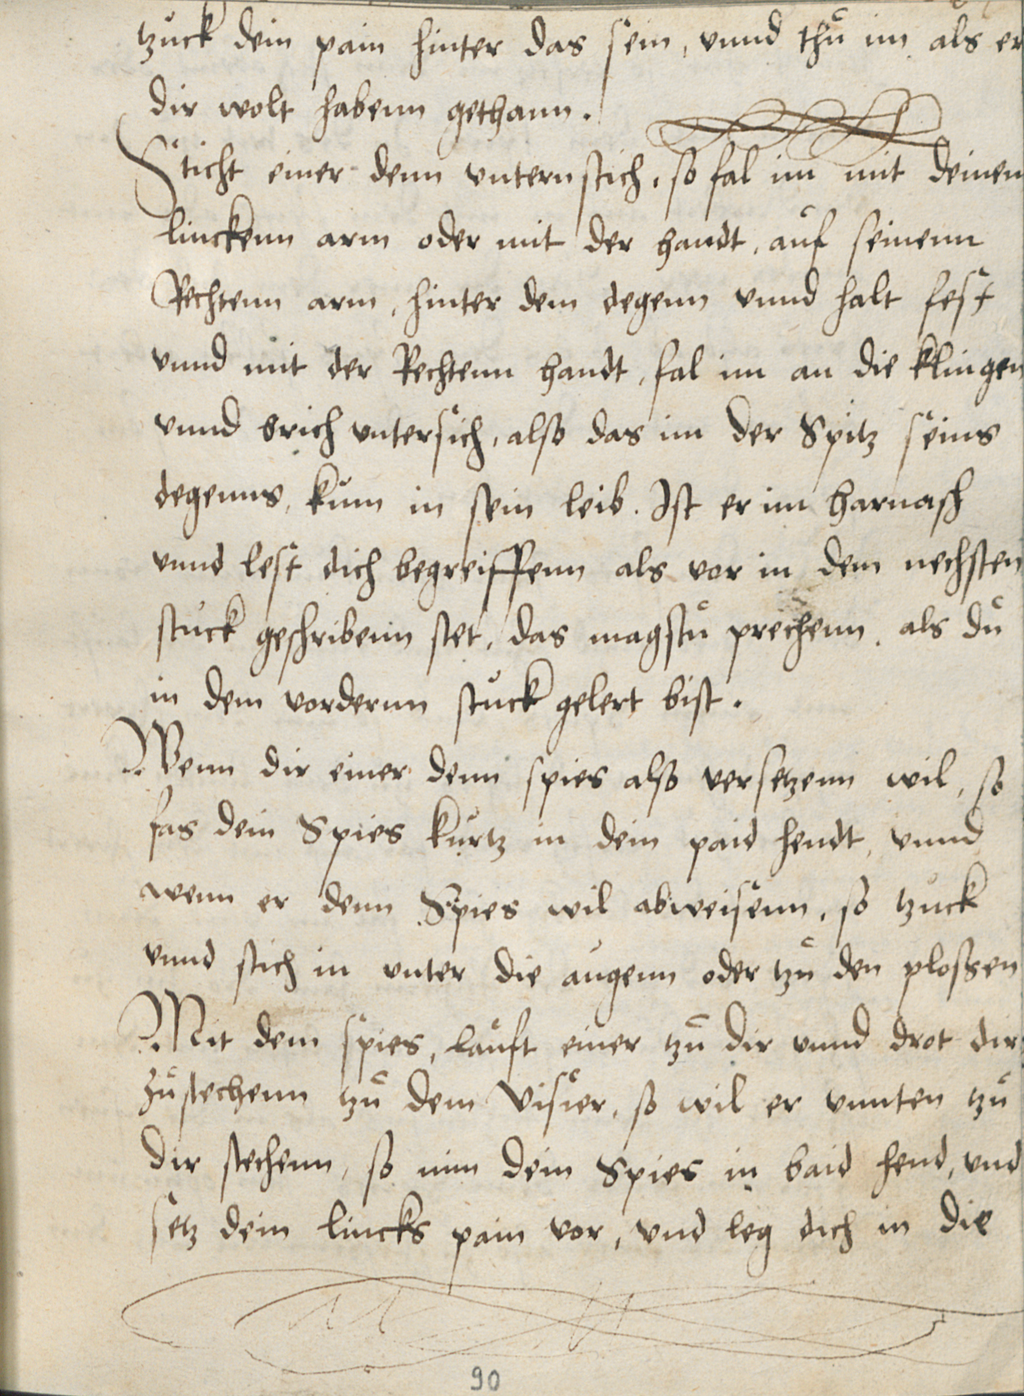 tzuck dein pain hinter das sein, vnnd thu im als er
dir wolt habenn gethann.
Sticht einer denn vnternstich, so fal im mit deinen
linckenn arm oder mit der handt, auf seinenn
Rechtenn arm, hinter dem degenn vnnd halt fest
vnnd mit der Rechtenn handt, fal im an die klingen
vnnd brich vntersich, also das im der Spitz seins
degenns, kum in sein leib. Ist er im harnasch
vnnd lest dich begreiffenn als vor in dem nechsten
stuck geschribenn stet, das magstu prechenn, als du
in dem vordernn stuck gelert bist.
Wenn dir einer denn spies also versetzenn wil, so
fas dein Spies kurtz in dein paid hendt, vnnd
wenn er denn Spies wil abweisenn, so tzuck
vnnd stich in vnter die augenn oder tzu den plossen
Mit dem spies, lauft einer tzu dir vnnd drot dir
zustechenn tzu dem Visier, so wil er vnnten tzu
dir stechenn, so nim dein Spies in baid hend, vnd
setz dein lincks pain vor, vnd leg dich in die
90